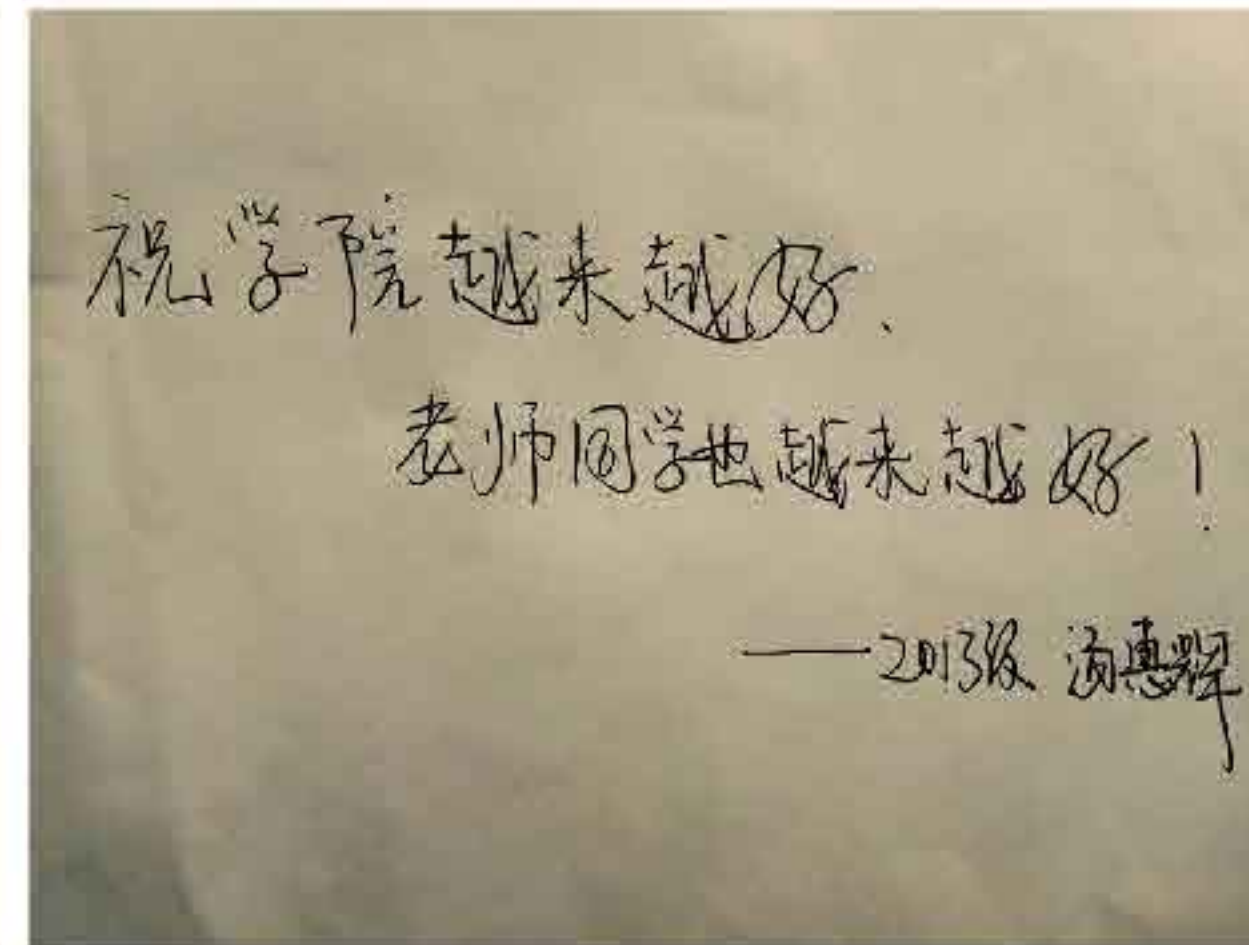 祝学院越来越好.
老师同学也越来越好！
——2013级